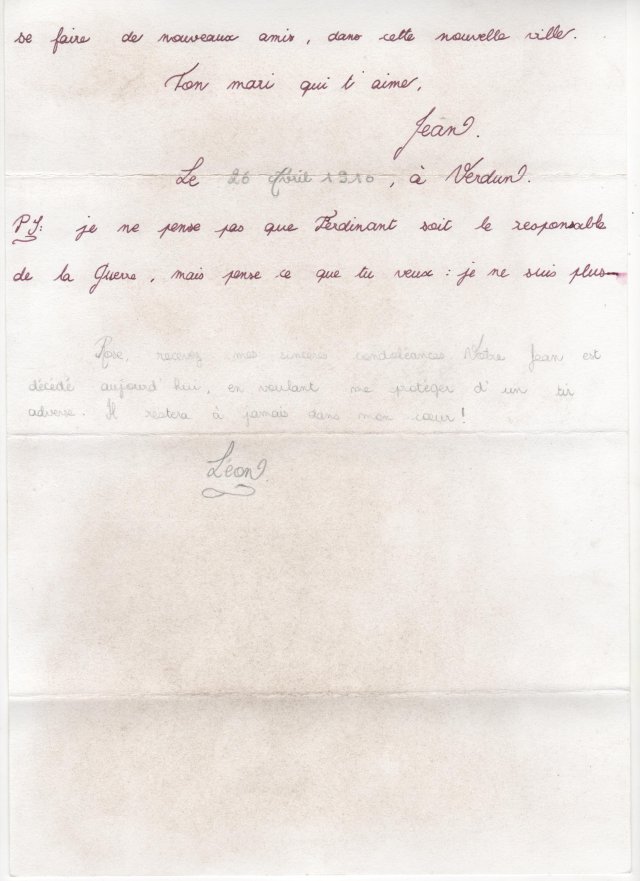 se faire de nouveaux amis, dans cette nouvelle ville.
Ton mari qui t'aime,
Jean.
Le 26 Avril 1910, à Verdun.
PS: je ne pense pas que Ferdinant soit le responsable
de la Guerre, mais pense ce que tu veux : je ne suis plus—
Rose, recevez mes sincères condoléances. Votre Jean est
décédé aujourd'hui, en voulant me protéger d'un tir
adverse. Il restera à jamais dans mon cœur !
Léon.